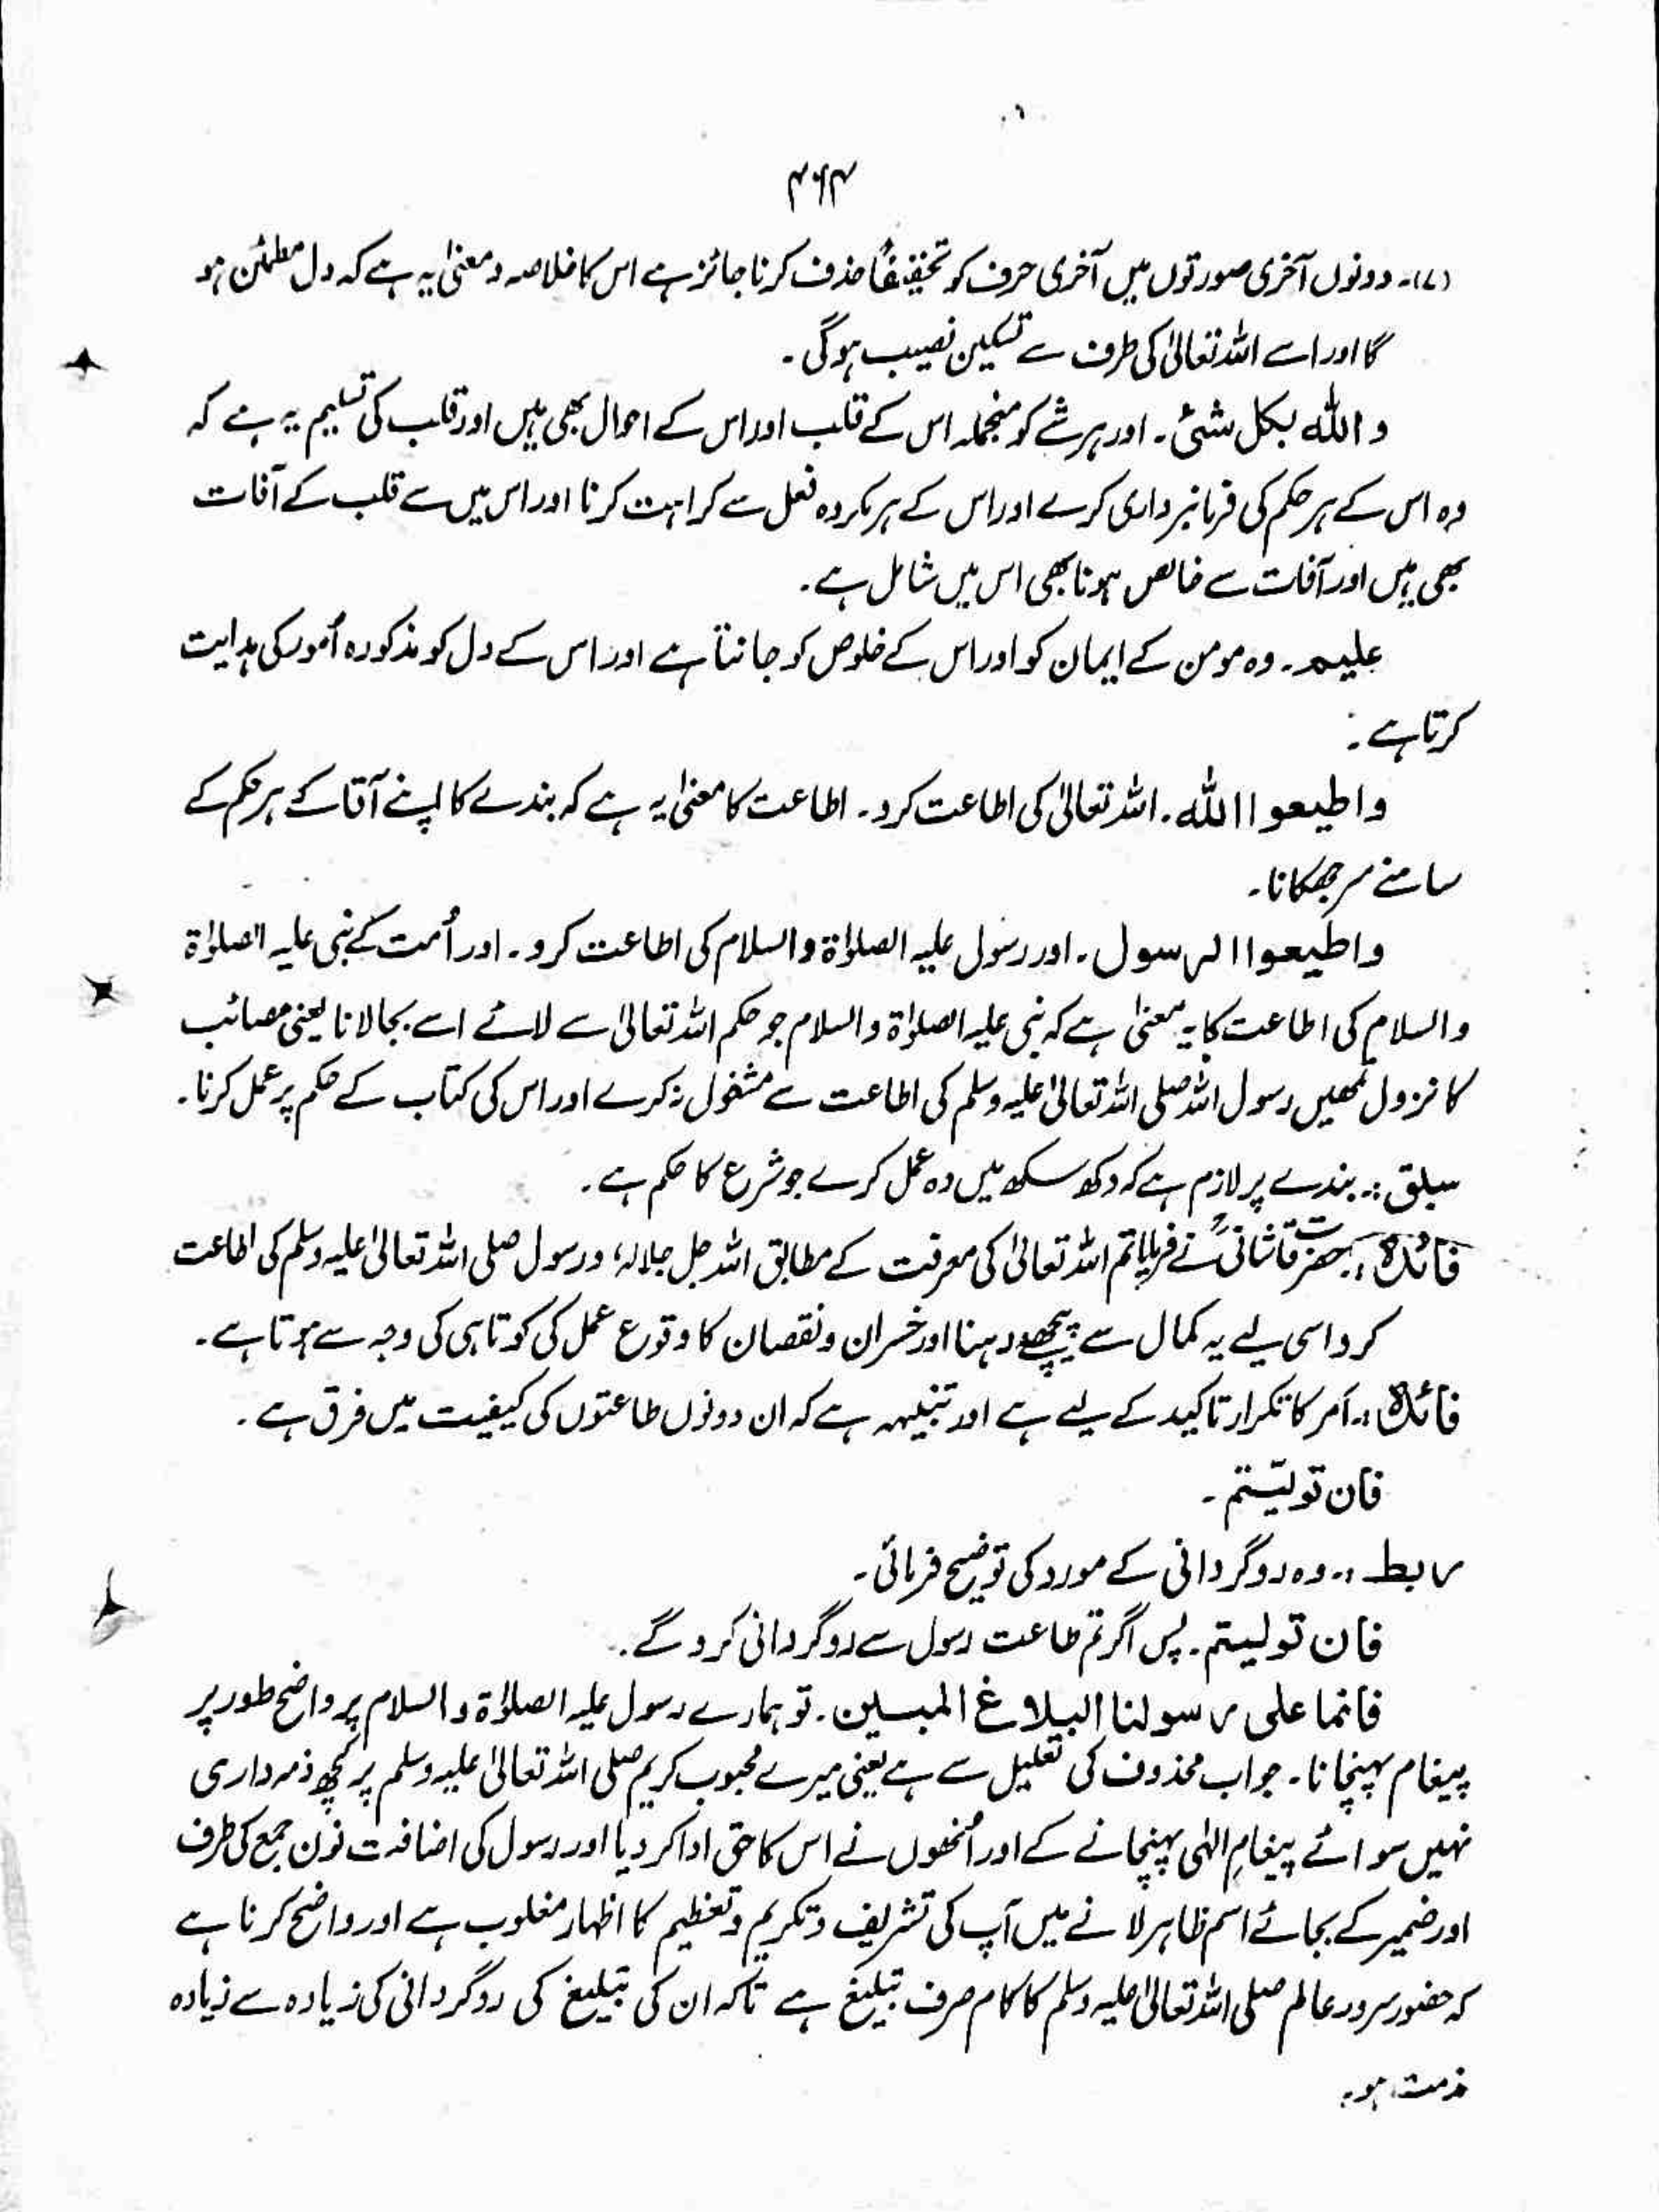 ۴۶۴
(۷)۔ دونوں آخری صورتوں میں آخری حرف کو تخفیفًا حذف کرنا جائز ہے اس کا خلاصہ و معنیٰ یہ ہے کہ دل مطمئن ہو
گا اور اسے اللہ تعالیٰ کی طرف سے تسکین نصیب ہوگی۔
و اللہ بکل شئ۔ اور ہر شے کو منجملہ اس کے قلب اور اس کے احوال بھی ہیں اور قلب کی تسلیم یہ ہے کہ
وہ اس کے ہر حکم کی فرمانبرداری کرے اور اس کے ہر مکروہ فعل سے کراہت کرنا اور اس میں سے قلب کے آفات
بھی ہیں اور آفات سے خالص ہونا بھی اس میں شامل ہے۔
علیم۔ وہ مومن کے ایمان کو اور اس کے خلوص کو جانتا ہے اور اس کے دل کو مذکورہ اُمور کی ہدایت
کرتا ہے :
واطیعوا اللہ۔ اللہ تعالیٰ کی اطاعت کرو۔ اطاعت کا معنیٰ یہ ہے کہ بندے کا اپنے آقا کے ہر حکم کے
سامنے سر جھکانا۔
واطیعوا الرسول۔ اور رسول علیہ الصلوٰۃ والسلام کی اطاعت کرو۔ اور اُمت کے نبی علیہ الصلوٰۃ
والسلام کی اطاعت کا یہ معنیٰ ہے کہ نبی علیہ الصلوٰۃ والسلام جو حکم اللہ تعالیٰ سے لائے اسے بجا لانا یعنی مصائب
کا نزول تمھیں رسول اللہ صلی اللہ تعالیٰ علیہ وسلم کی اطاعت سے مشغول نہ کرے اور اس کی کتاب کے حکم پر عمل کرنا۔
سبق :۔ بندے پر لازم ہے کہ دکھ سکھ میں وہ عمل کرے جو شرع کا حکم ہے۔
فائدہ :۔ حضرت قاشانیؒ نے فرمایا تم اللہ تعالیٰ کی معرفت کے مطابق اللہ جل جلالہٗ و رسول صلی اللہ تعالیٰ علیہ وسلم کی اطاعت
کرو اسی لیے یہ کمال سے پیچھے رہنا اور خسران و نقصان کا وقوع عمل کی کوتاہی کی وجہ سے ہوتا ہے۔
فائدہ :۔ اَمر کا تکرار تاکید کے لیے ہے اور تنبیہہ ہے کہ ان دونوں طاعتوں کی کیفیت میں فرق ہے۔
فان تولیّتم۔
ربط :۔ وہ روگردانی کے مورد کی توضیح فرمائی۔
فان تولیتم۔ پس اگر تم طاعت رسول سے روگردانی کرو گے۔
فانما علی رسولنا البلاغ المبین۔ تو ہمارے رسول علیہ الصلوٰۃ والسلام پر واضح طور پر
پیغام پہنچانا۔ جواب محذوف کی تعلیل سے ہے یعنی میرے محبوب کریم صلی اللہ تعالیٰ علیہ وسلم پر کچھ ذمہ داری
نہیں سوائے پیغامِ الٰہی پہنچانے کے اور اُنھوں نے اس کا حق ادا کر دیا اور رسول کی اضافت نون جمع کی طرف
اور ضمیر کے بجائے اسم ظاہر لانے میں آپ کی تشریف و تکریم و تعظیم کا اظہار مغلوب ہے اور واضح کرنا ہے
کہ حضور سرور عالم صلی اللہ تعالیٰ علیہ وسلم کا کام صرف تبلیغ ہے تاکہ ان کی تبلیغ کی روگردانی کی زیادہ سے زیادہ
مذمت ہو۔